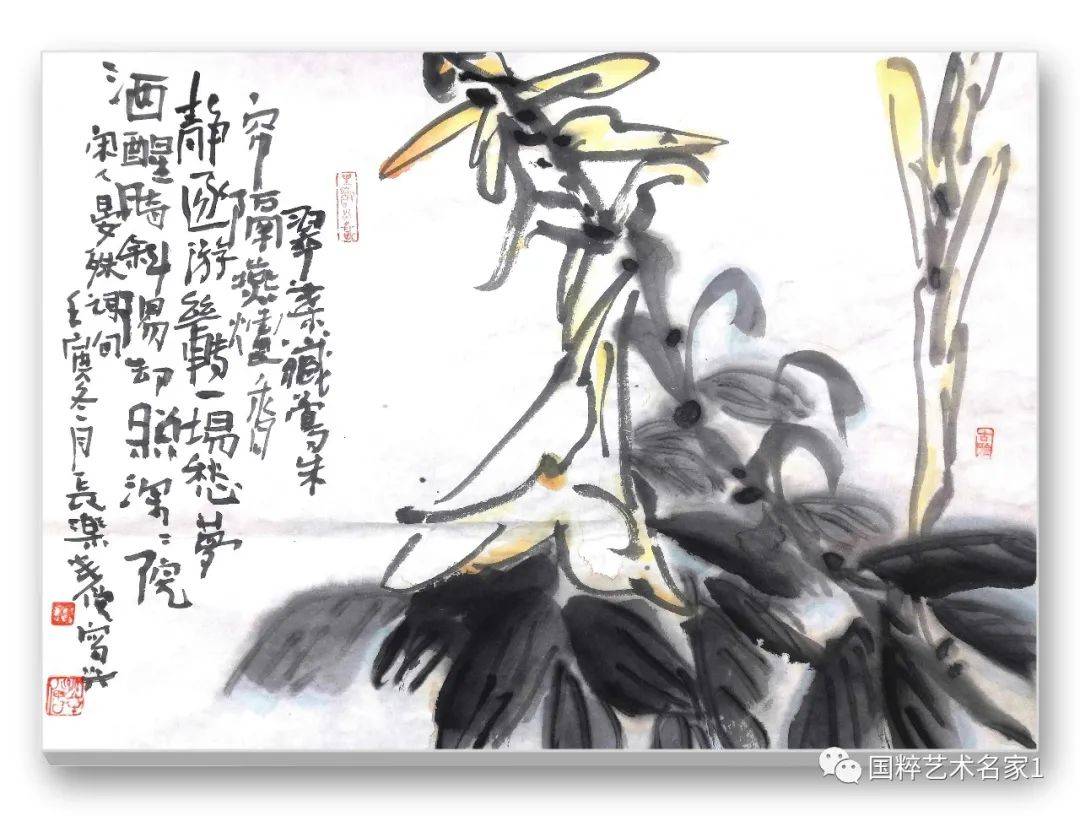 翠葉藏鶯朱
帘隔燕爐香
靜逐游絲轉一場愁夢
酒醒時斜陽却照深〻院
宋人晏殊詞句
壬寅冬月長樂寫
国粹艺术名家1